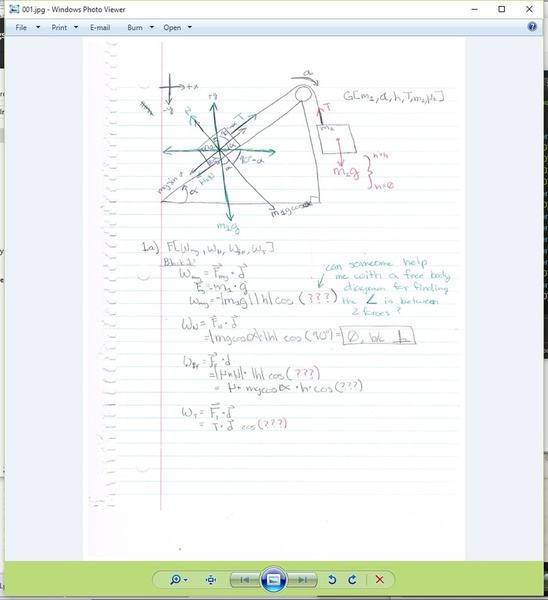 001.jpg - Windows Photo Viewer
File Print E-mail Burn Open
a
+x
-y
+y
T
T
G[m₁, α, h, T, m₂, μₖ]
m₂
m₂g
h=h
h=0
90-α
α
α
mg sin α
m₁g cos α
m₁g
1a) F[W_mg, W_N, W_fk, W_T]
Block 1:
W_mg = F_mg · d
= m₁ · g
W_mg = -|m₁g| |h| cos (???)
can someone help
me with a free body
diagram for finding
the ∠ is between
2 forces?
W_N = F_N · d
= |mg cos α| · |h| cos (90°) = 0, b/c ⊥
W_fk = F_f · d
= |μ·N| · |h| cos (???)
= μ · mg cos α · h · cos (???)
W_T = F_T · d
= T · d cos (???)